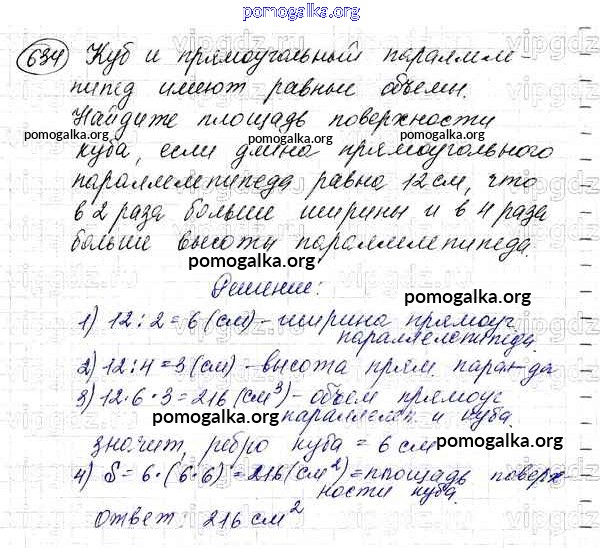 pomogalka.org
634 Куб и прямоугольный параллеле-
пипед имеют равные объемы.
Найдите площадь поверхности
pomogalka.org pomogalka.org
куба, если длина прямоугольного
параллелепипеда равна 12 см, что
в 2 раза больше ширины и в 4 раза
больше высоты параллелепипеда.
pomogalka.org
Решение:
pomogalka.org
1) 12 : 2 = 6 (см) - ширина прямоуг.
параллелепипеда.
2) 12 : 4 = 3 (см) - высота прям. парал-да
3) 12 · 6 · 3 = 216 (см³) - объем прямоуг
pomogalka.org параллелеп и куба.
значит, ребро куба = 6 см
pomogalka.org
4) S = 6 · (6 · 6) = 216 (см²) = площадь поверх-
ности куба.
pomogalka.org
ответ: 216 см²
pomogalka.org